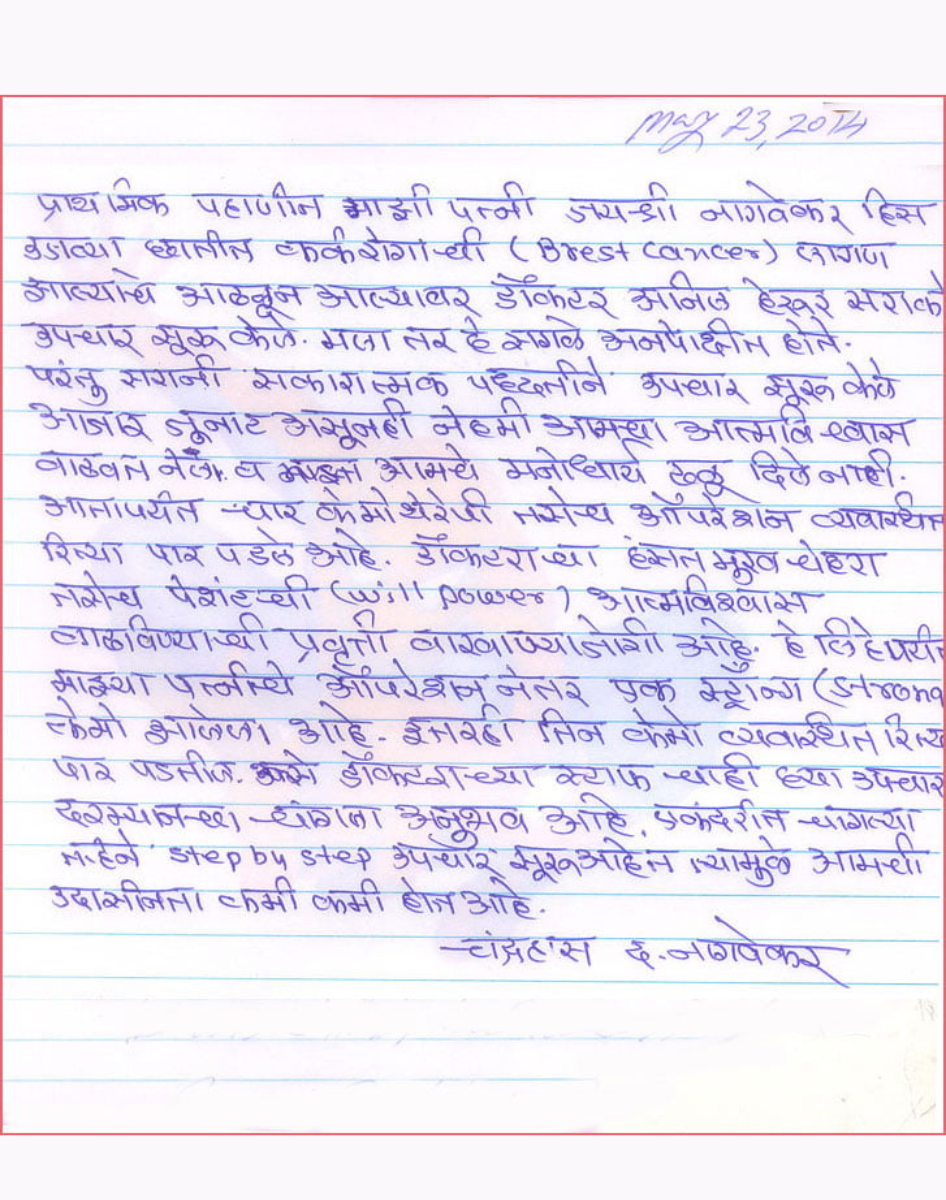 May 23, 2014
प्राथमिक पहाणीत माझी पत्नी जयश्री नागवेकर हिस
उजव्या छातीत कर्करोगाची (Brest cancer) लागण
झाल्याचे आढळून आल्यावर डॉक्टर अनिल हेरूर सरांकडे
उपचार सूरू केले. मला तर हे सगळे अनपेक्षीत होते.
परंतु सरांनी सकारात्मक पद्धतीने उपचार सूरू केले
आजार जूनाट असूनही नेहमी आमचा आत्मविश्वास
वाढवत नेला. व आमचे मनोधैर्य ढळू दिले नाही.
आतापर्यंत चार केमोथेरेपी तसेच ऑपरेशन व्यवास्थित
रित्या पार पडले आहे. डॉक्टरांचा हंसतमूख चेहरा
तसेच पेशंटची (will power) आत्मविश्वास
वाढविण्याची प्रवृत्ती वाखाण्याजोगी आहे. हे लिहेपर्यंत
माझ्या पत्नीचे ऑपरेशन नंतर एक स्ट्रान्ग (Strong
केमो झालेला आहे. इतरही तिन केमो व्यवास्थित रित्या
पार पडतील. डॉक्टरांच्या स्टाफ चाही ह्या उपचार
दरम्यानचा चांगला अनुभव आहे. एकंदरीत चांगल्या
तर्‍हेने step by step उपचार सूरू आहेत त्यामुळे आमची
उदासीनता कमी कमी होत आहे.
चंद्रहास द. नागवेकर